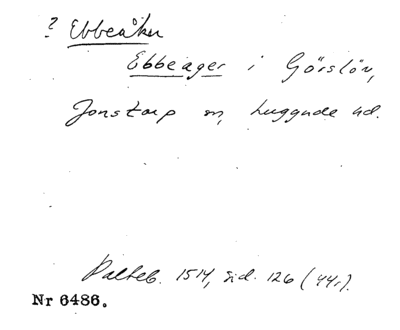 ? Ebbeåker
Ebbeager i Görslöv,
Jonstorp sn, Luggude hd.
Palteb. 1514, sid. 126 (44r).
Nr 6486.